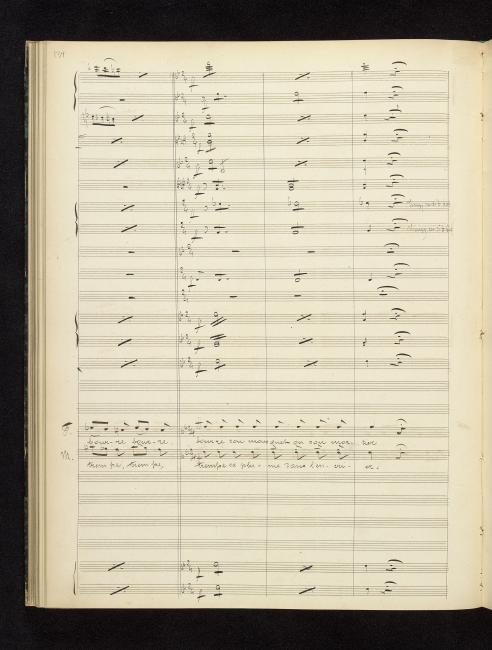 134
F.
bour-re bour-re. bourre son mousquet ou son mor- tier
M.
trem pe, trem pe, trempe sa plu- me dans l'en- cri- er.